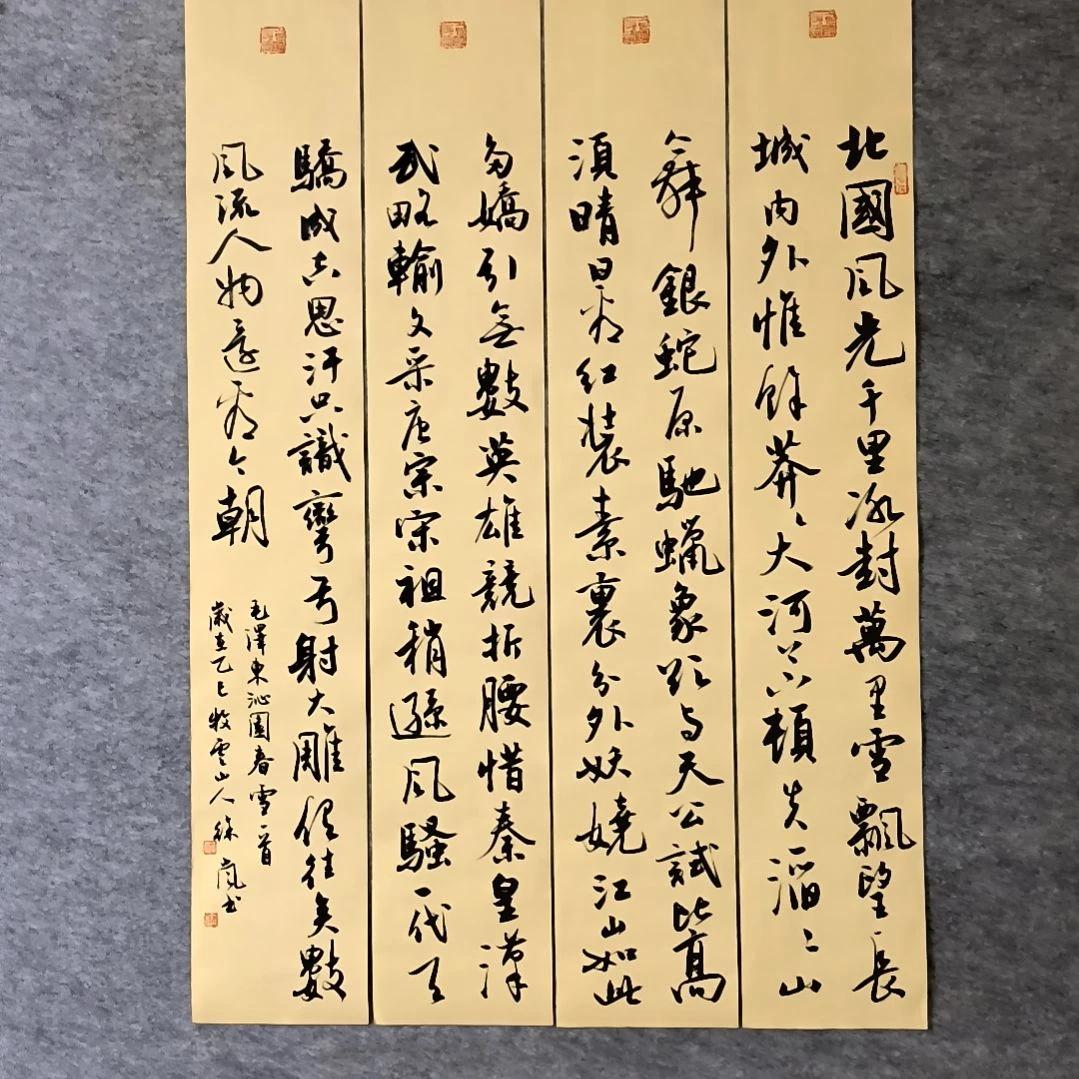 北國風光千里冰封萬里雪飄望長
城内外惟餘莽〻大河上下頓失滔〻山
舞銀蛇原馳蠟象欲与天公試比高
須晴日看红裝素裹分外妖嬈江山如此
多嬌引無數英雄競折腰惜秦皇漢
武略輸文采唐宗宋祖稍遜風騷一代天
驕成吉思汗只識彎弓射大雕俱往矣數
風流人物還看今朝
毛澤東沁園春雪一首
歲在乙巳牧雲山人徐嵐书